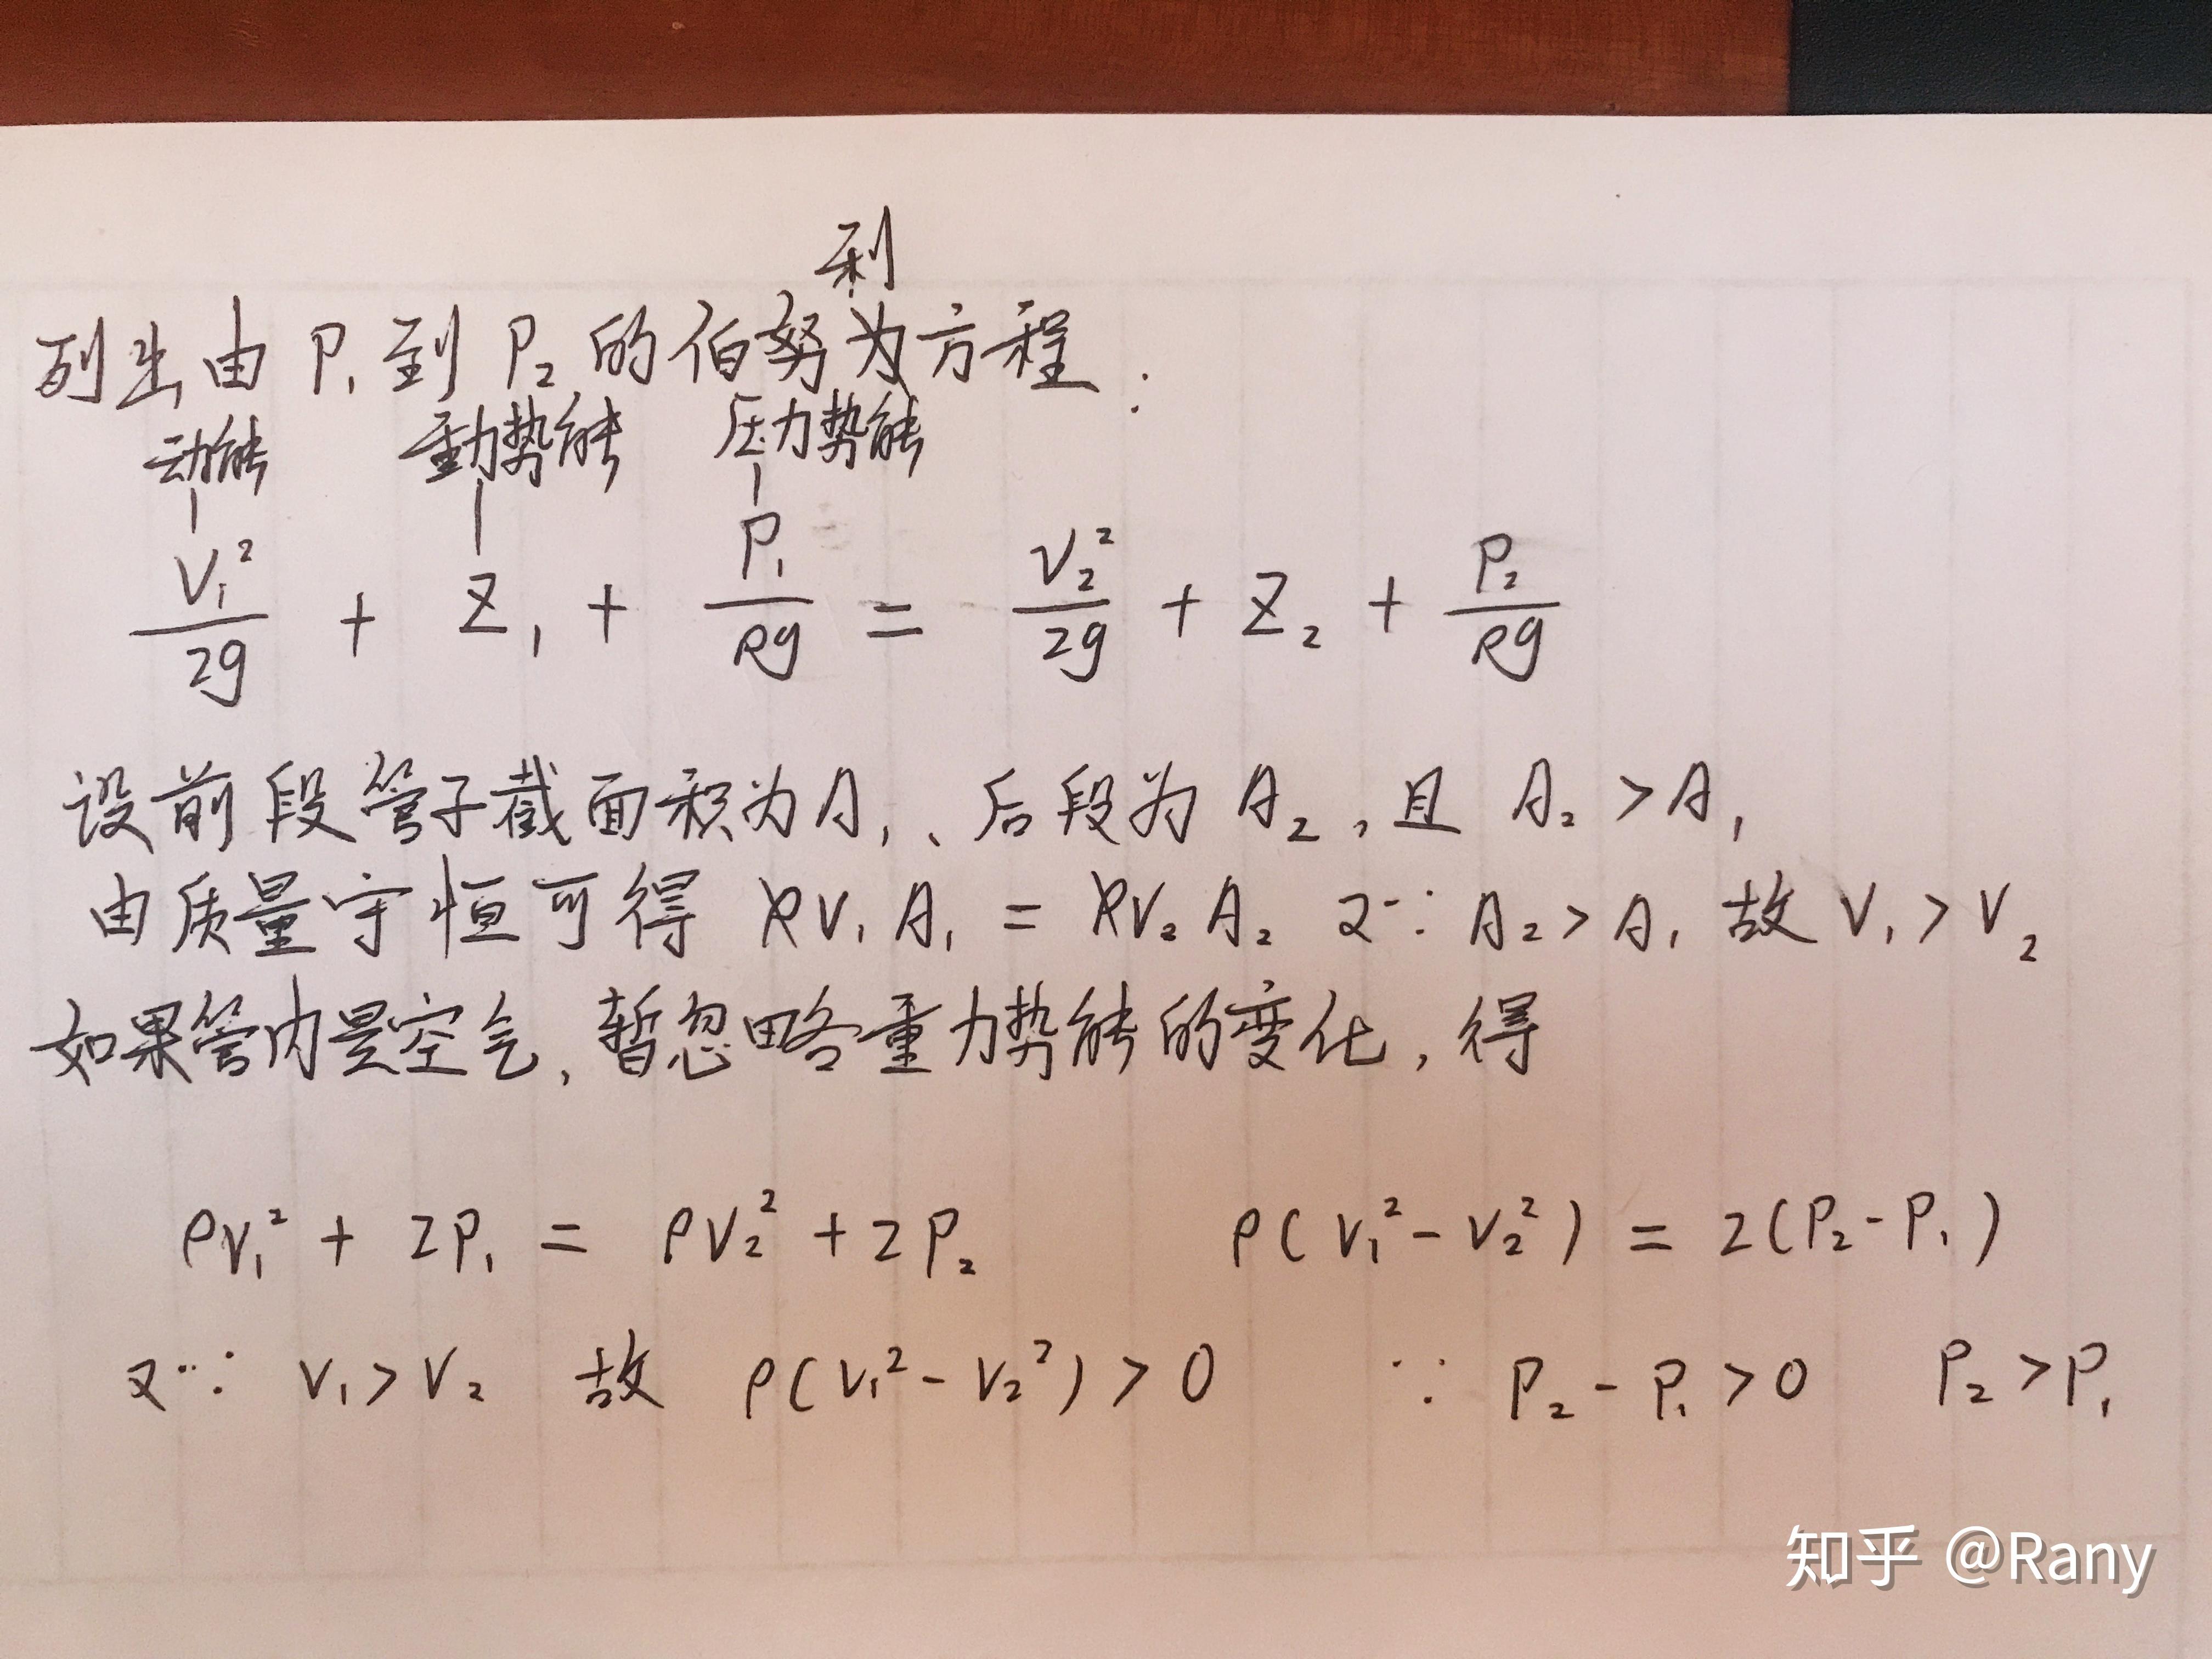 利
列出由 P₁ 到 P₂ 的伯努为方程:
动能 重力势能 压力势能
V₁²/2g + Z₁ + P₁/ρg = V₂²/2g + Z₂ + P₂/ρg
设前段管子截面积为A₁、后段为 A₂,且 A₂ > A₁
由质量守恒可得 ρV₁A₁ = ρV₂A₂ 又∵ A₂ > A₁ 故 V₁ > V₂
如果管内是空气,暂忽略重力势能的变化,得
ρV₁² + 2P₁ = ρV₂² + 2P₂ ρ(V₁² - V₂²) = 2(P₂ - P₁)
又∵ V₁ > V₂ 故 ρ(V₁² - V₂²) > 0 ∵ P₂ - P₁ > 0 P₂ > P₁
知乎 @Rany